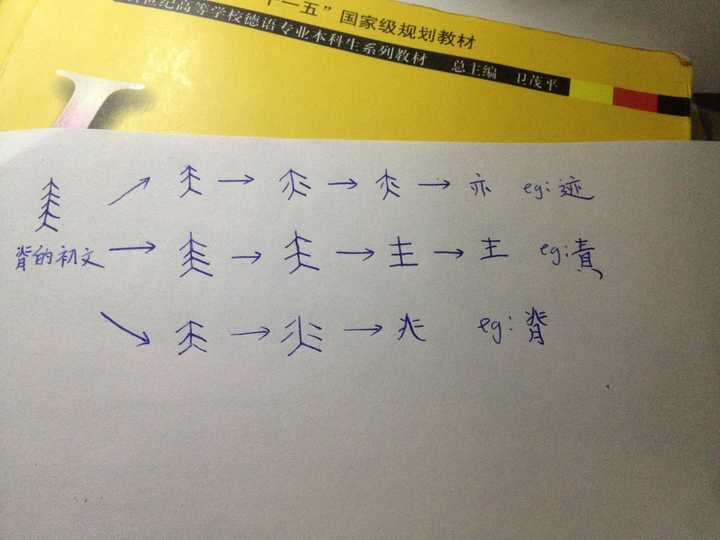 十一五”国家级规划教材
世纪高等学校德语专业本科生系列教材 总主编 卫茂平
→ → → 亦 eg: 迹
脊的初文 → → → → 龶 eg: 責
→ → eg: 脊